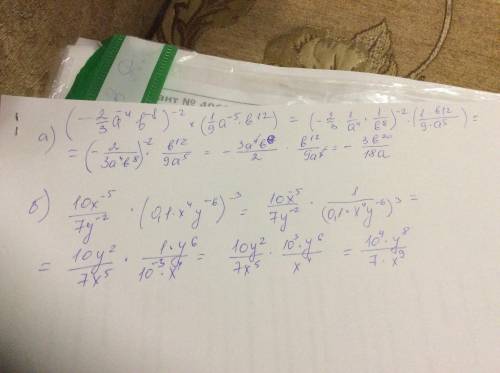 ант № 40
а) (-2/3 a⁻⁴ b⁻⁸)⁻² × (1/9 a⁻⁵ · b¹²) = (-2/3 · 1/a⁴ · 1/b⁸)⁻² · (1/9 · b¹²/a⁵) =
= (-2/3a⁴b⁸)⁻² · b¹²/9a⁵ = -3a⁴b⁸/2 · b¹²/9a⁵ = -3b²⁰/18a
б) 10x⁻⁵/7y⁻² · (0,1 · x⁴y⁻⁶)⁻³ = 10x⁻⁵/7y⁻² · 1/(0,1 · x⁴y⁻⁶)³ =
= 10y²/7x⁵ · 1 · y⁶/10⁻³ · x⁴ = 10y²/7x⁵ · 10³ · y⁶/x⁴ = 10⁴ · y⁸/7 · x⁹